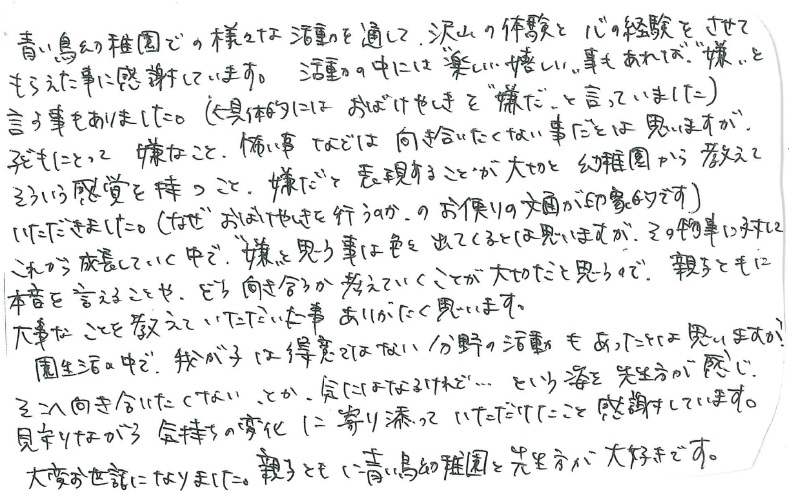 青い鳥幼稚園での様々な活動を通して、沢山の体験と心の経験をさせて
もらえた事に感謝しています。 活動の中には"楽しい嬉しい"事もあれば、"嫌"と
言う事もありました。(具体的には おばけやしきを"嫌だ"と言っていました)
子どもにとって 嫌なこと、怖い事 などは 向き合いたくない事だとは思いますが、
そういう感覚を持つこと、嫌だと表現することが大切と 幼稚園から教えて
いただきました。(なぜ おばけやしきを行うのか、のお便りの文面が印象的です)
これから成長していく中で、"嫌"と思う事は色々出てくるとは思いますが、その物事に対して
本音を言えることや、どう向き合うか考えていくことが大切だと思うので、親子ともに
大事なことを教えていただいた事ありがたく思います。
園生活の中で、我が子は得意ではない分野の活動もあったとは思いますが
そこへ向き合いたくない、とか、気にはなるけれど… という姿を先生方が感じ、
見守りながら 気持ちの変化に寄り添っていただけたこと感謝しています。
大変お世話になりました。親子ともに青い鳥幼稚園と先生方が大好きです。